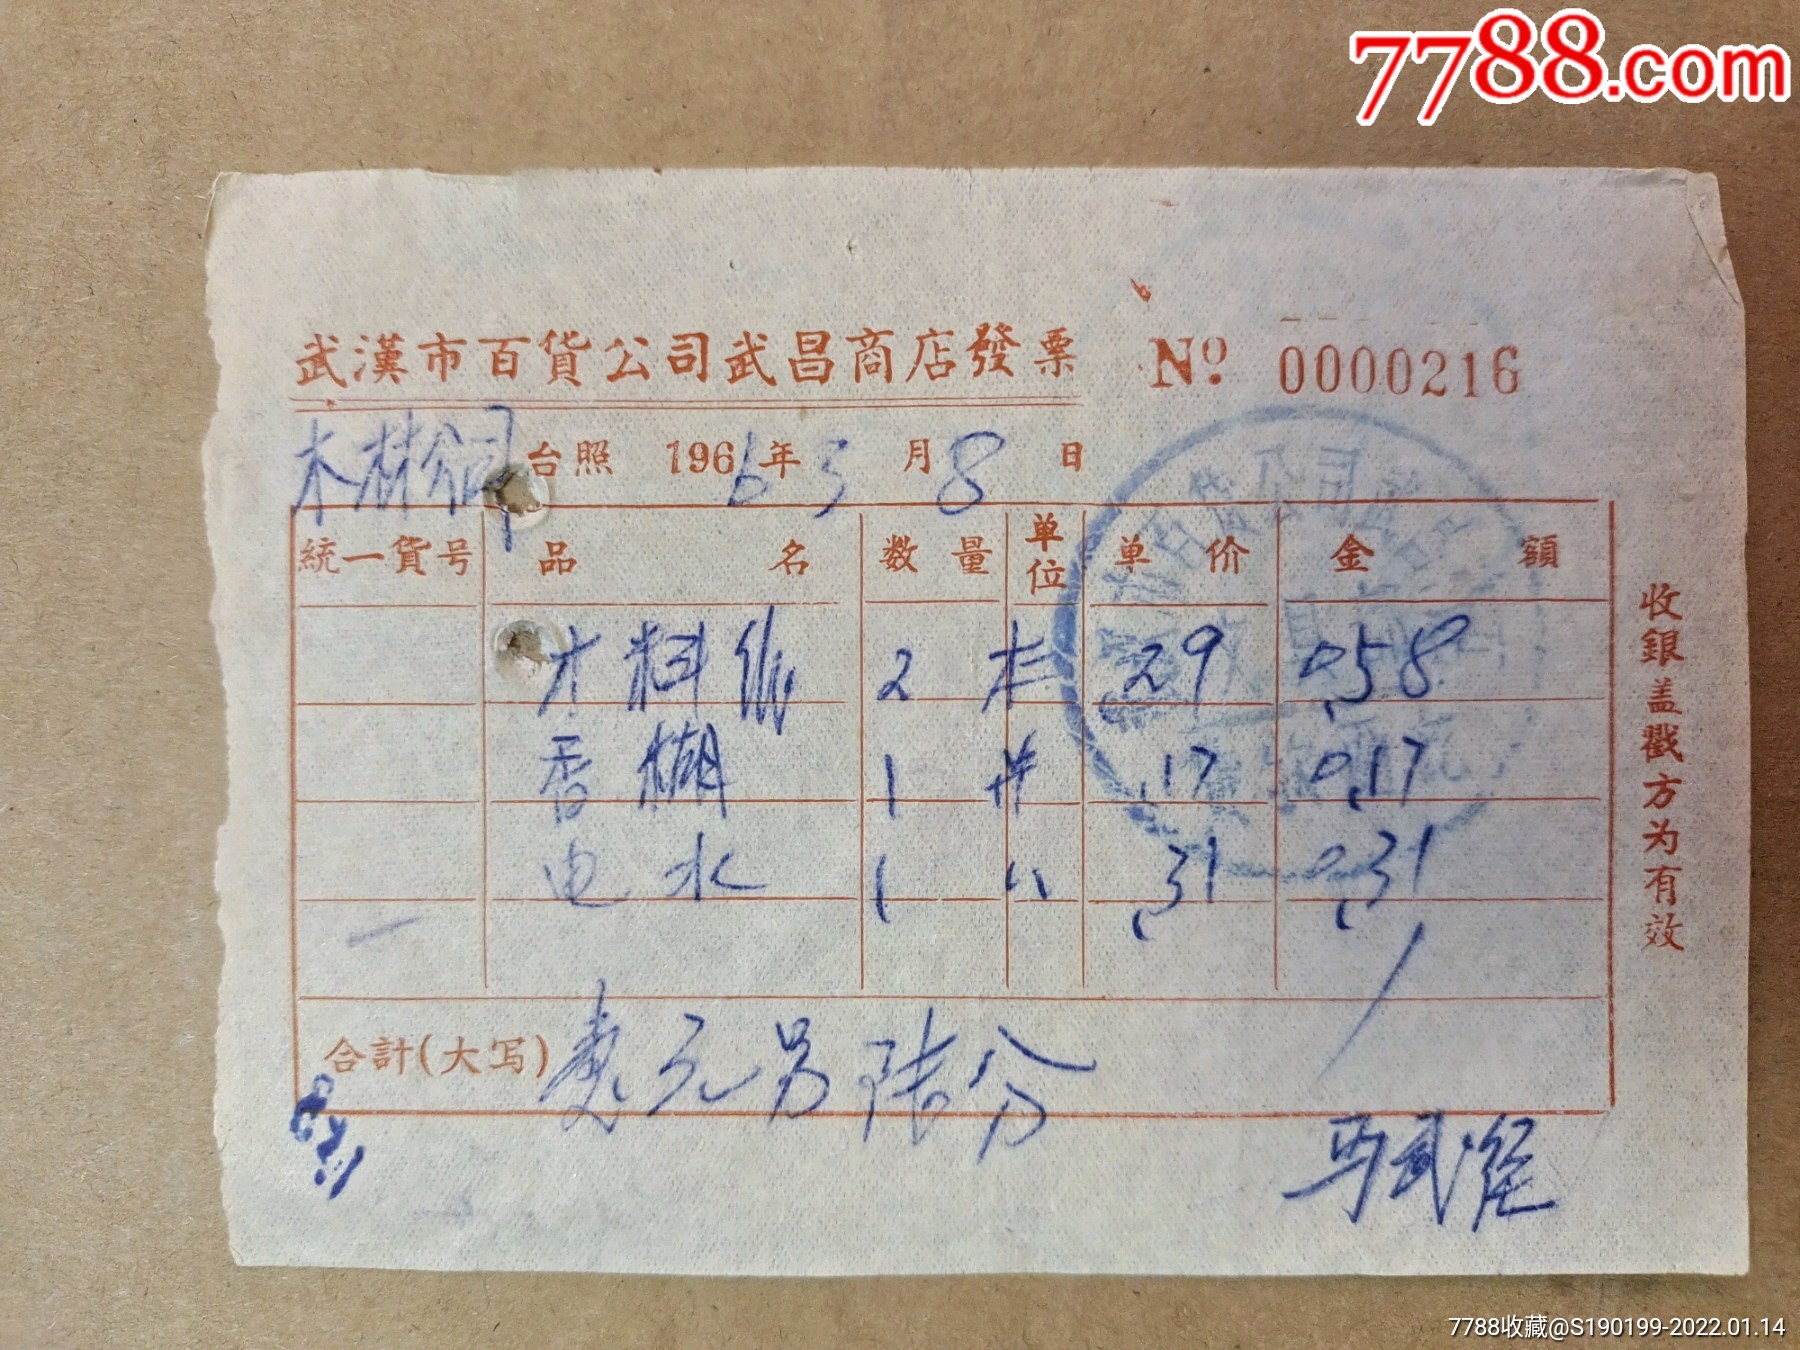 7788.com
武漢市百貨公司武昌商店發票 Nº 0000216
木材公司 台照 1966年 3月 8日
統一貨号 品名 数量 单位 单价 金額
2 .29 0.58
香糊 1 .17 0.17
电水 1 〃 .31 0.31
合計(大写) 壹元另陆分
收銀盖戳方为有效
7788收藏@S190199-2022.01.14